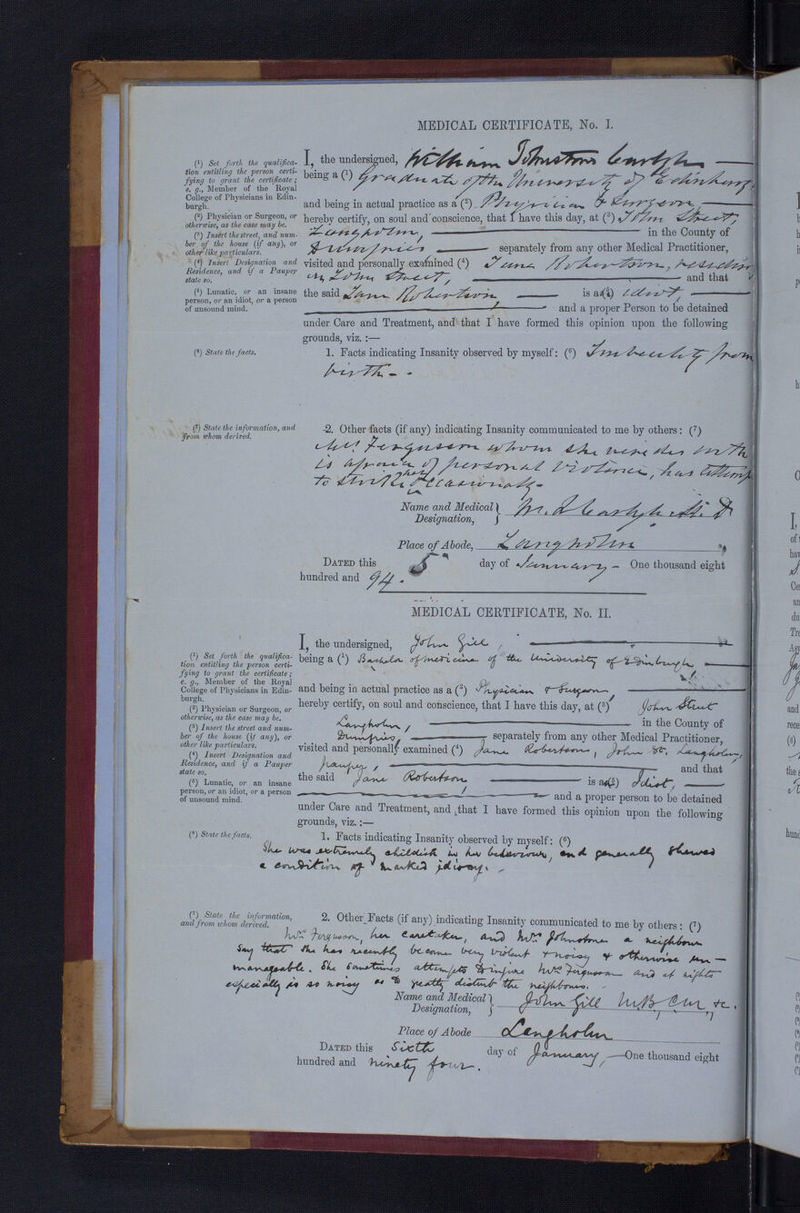 MEDICAL CERTIFICATE, No. I.
(¹) Set forth the qualifica-
tion entitling the person certi-
fying to grant the certificate;
e. g., Member of the Royal
College of Physicians in Edin-
burgh.
(²) Physician or Surgeon, or
otherwise, as the case may be.
(³) Insert the street, and num-
ber of the house (if any), or
other like particulars.
(⁴) Insert Designation and
Residence, and if a Pauper
state so.
(⁵) Lunatic, or an insane
person, or an idiot, or a person
of unsound mind.
(⁶) State the facts.
I, the undersigned, William Johnstone Carlyle
being a (¹) Graduate of the University of Edinburgh
and being in actual practice as a (²) Physician & Surgeon,
hereby certify, on soul and conscience, that I have this day, at (³) John Street,
Langholm, in the County of
Dumfries separately from any other Medical Practitioner,
visited and personally examined (⁴) Jane Robertson, residing
in John Street, and that
the said Jane Robertson is a (⁵) idiot,
and a proper Person to be detained
under Care and Treatment, and that I have formed this opinion upon the following
grounds, viz. :—
1. Facts indicating Insanity observed by myself: (⁶) Imbecility from
birth -
(⁷) State the information, and
from whom derived.
2. Other facts (if any) indicating Insanity communicated to me by others: (⁷)
Mrs Fergusson whom she resides with
is afraid of personal violence, has attempted
to strike her occasionally -
Name and Medical Designation, W. J. Carlyle M.D
Place of Abode, Langholm
DATED this 5th day of January - One thousand eight
hundred and 94.
MEDICAL CERTIFICATE, No. II.
(¹) Set forth the qualifica-
tion entitling the person certi-
fying to grant the certificate;
e. g., Member of the Royal
College of Physicians in Edin-
burgh.
(²) Physician or Surgeon, or
otherwise, as the case may be.
(³) Insert the street and num-
ber of the house (if any), or
other like particulars.
(⁴) Insert Designation and
Residence, and if a Pauper
state so.
(⁵) Lunatic, or an insane
person, or an idiot, or a person
of unsound mind.
(⁶) State the facts.
I, the undersigned, John Gill,
being a (¹) Bachelor of medicine of the University of Edinburgh,
and being in actual practice as a (²) Physician & Surgeon,
hereby certify, on soul and conscience, that I have this day, at (³) John Street
Langholm, in the County of
Dumfries, separately from any other Medical Practitioner,
visited and personally examined (⁴) Jane Robertson, John St. Langholm,
pauper, and that
the said Jane Robertson is a (⁵) Idiot,
and a proper person to be detained
under Care and Treatment, and that I have formed this opinion upon the following
grounds, viz. :—
1. Facts indicating Insanity observed by myself: (⁶)
She was extremely childish in her behaviour, and generally shewed
a condition of marked idiocy.
(⁷) State the information,
and from whom derived.
2. Other Facts (if any) indicating Insanity communicated to me by others: (⁷)
Mrs Fergusson, her caretaker, and Mrs Johnstone a neighbour
say that she has recently become very violent & noisy & otherwise un-
manageable. She sometimes attempts to injure Mrs Fergusson and at nights
especially is so noisy as to greatly disturb the neighbours.
Name and Medical Designation, John Gill M.B. C.M., &c.
Place of Abode Langholm
DATED this Sixth day of January, —One thousand eight
hundred and ninety four.